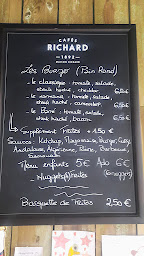 CAFÉS
RICHARD
1892
Les Burger (Pain Rond)
le classique: tomate, salade,
steak haché, cheddar 6,50€
le : tomate, salade
steak haché, camembert
le Baré: tomate, salade,
steak haché, bacon 6,50€
Supplément Frites + 1,50€
Sauces: Ketchup, Mayonnaise, Burger, Curry,
Andalouse, Algérienne, Blanc, Barbecue,
Samouraï
Menu enfants 5€ Ado 6€
Nuggets/Frites
Barquette de Frites 2,50€